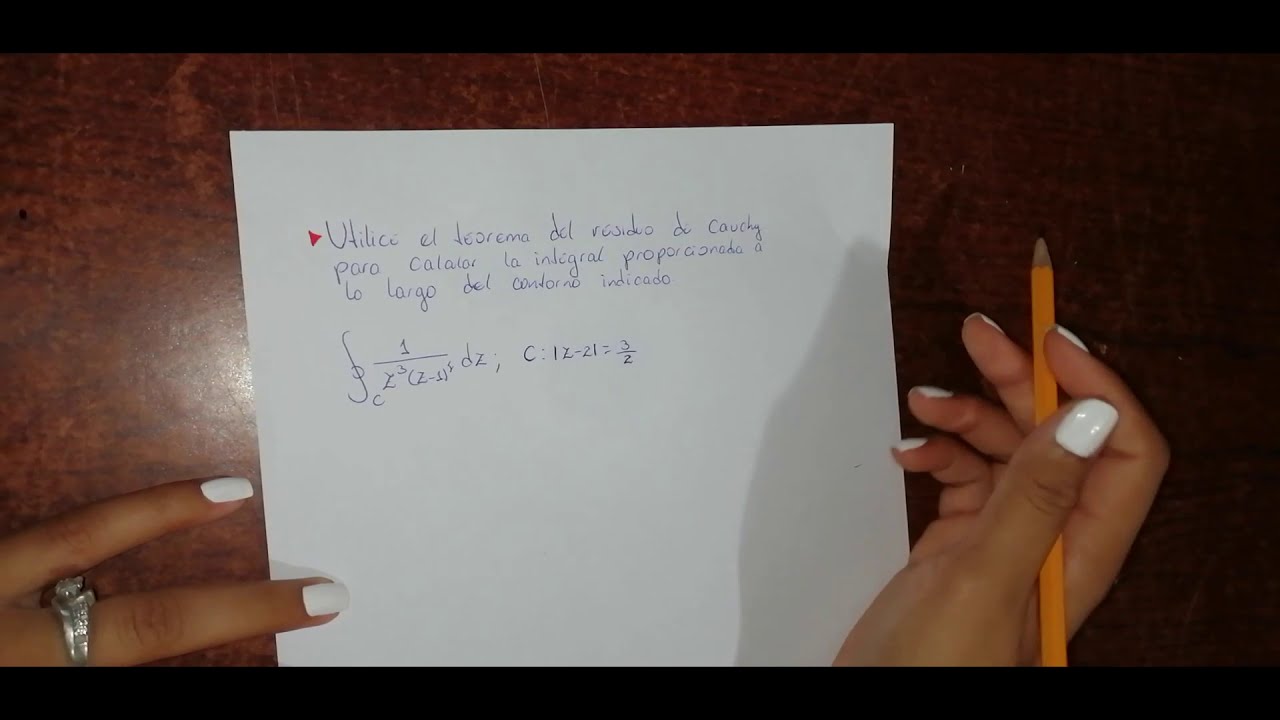 Utilice el teorema del residuo de Cauchy
para calcular la integral proporcionada a
lo largo del contorno indicado.
∮_C 1/(z³(z-1)⁴) dz; C: |z-2| = 3/2